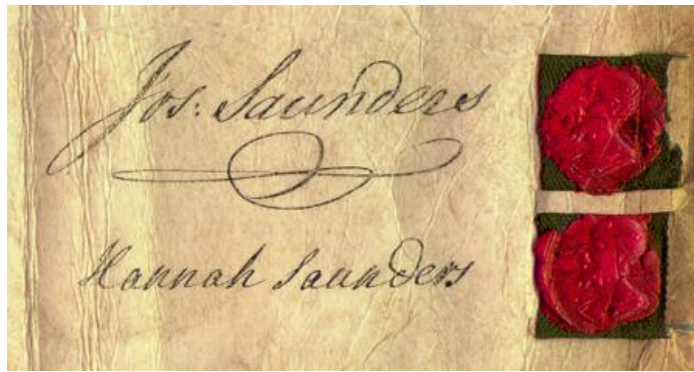 Jos: Saunders
Hannah Saunders